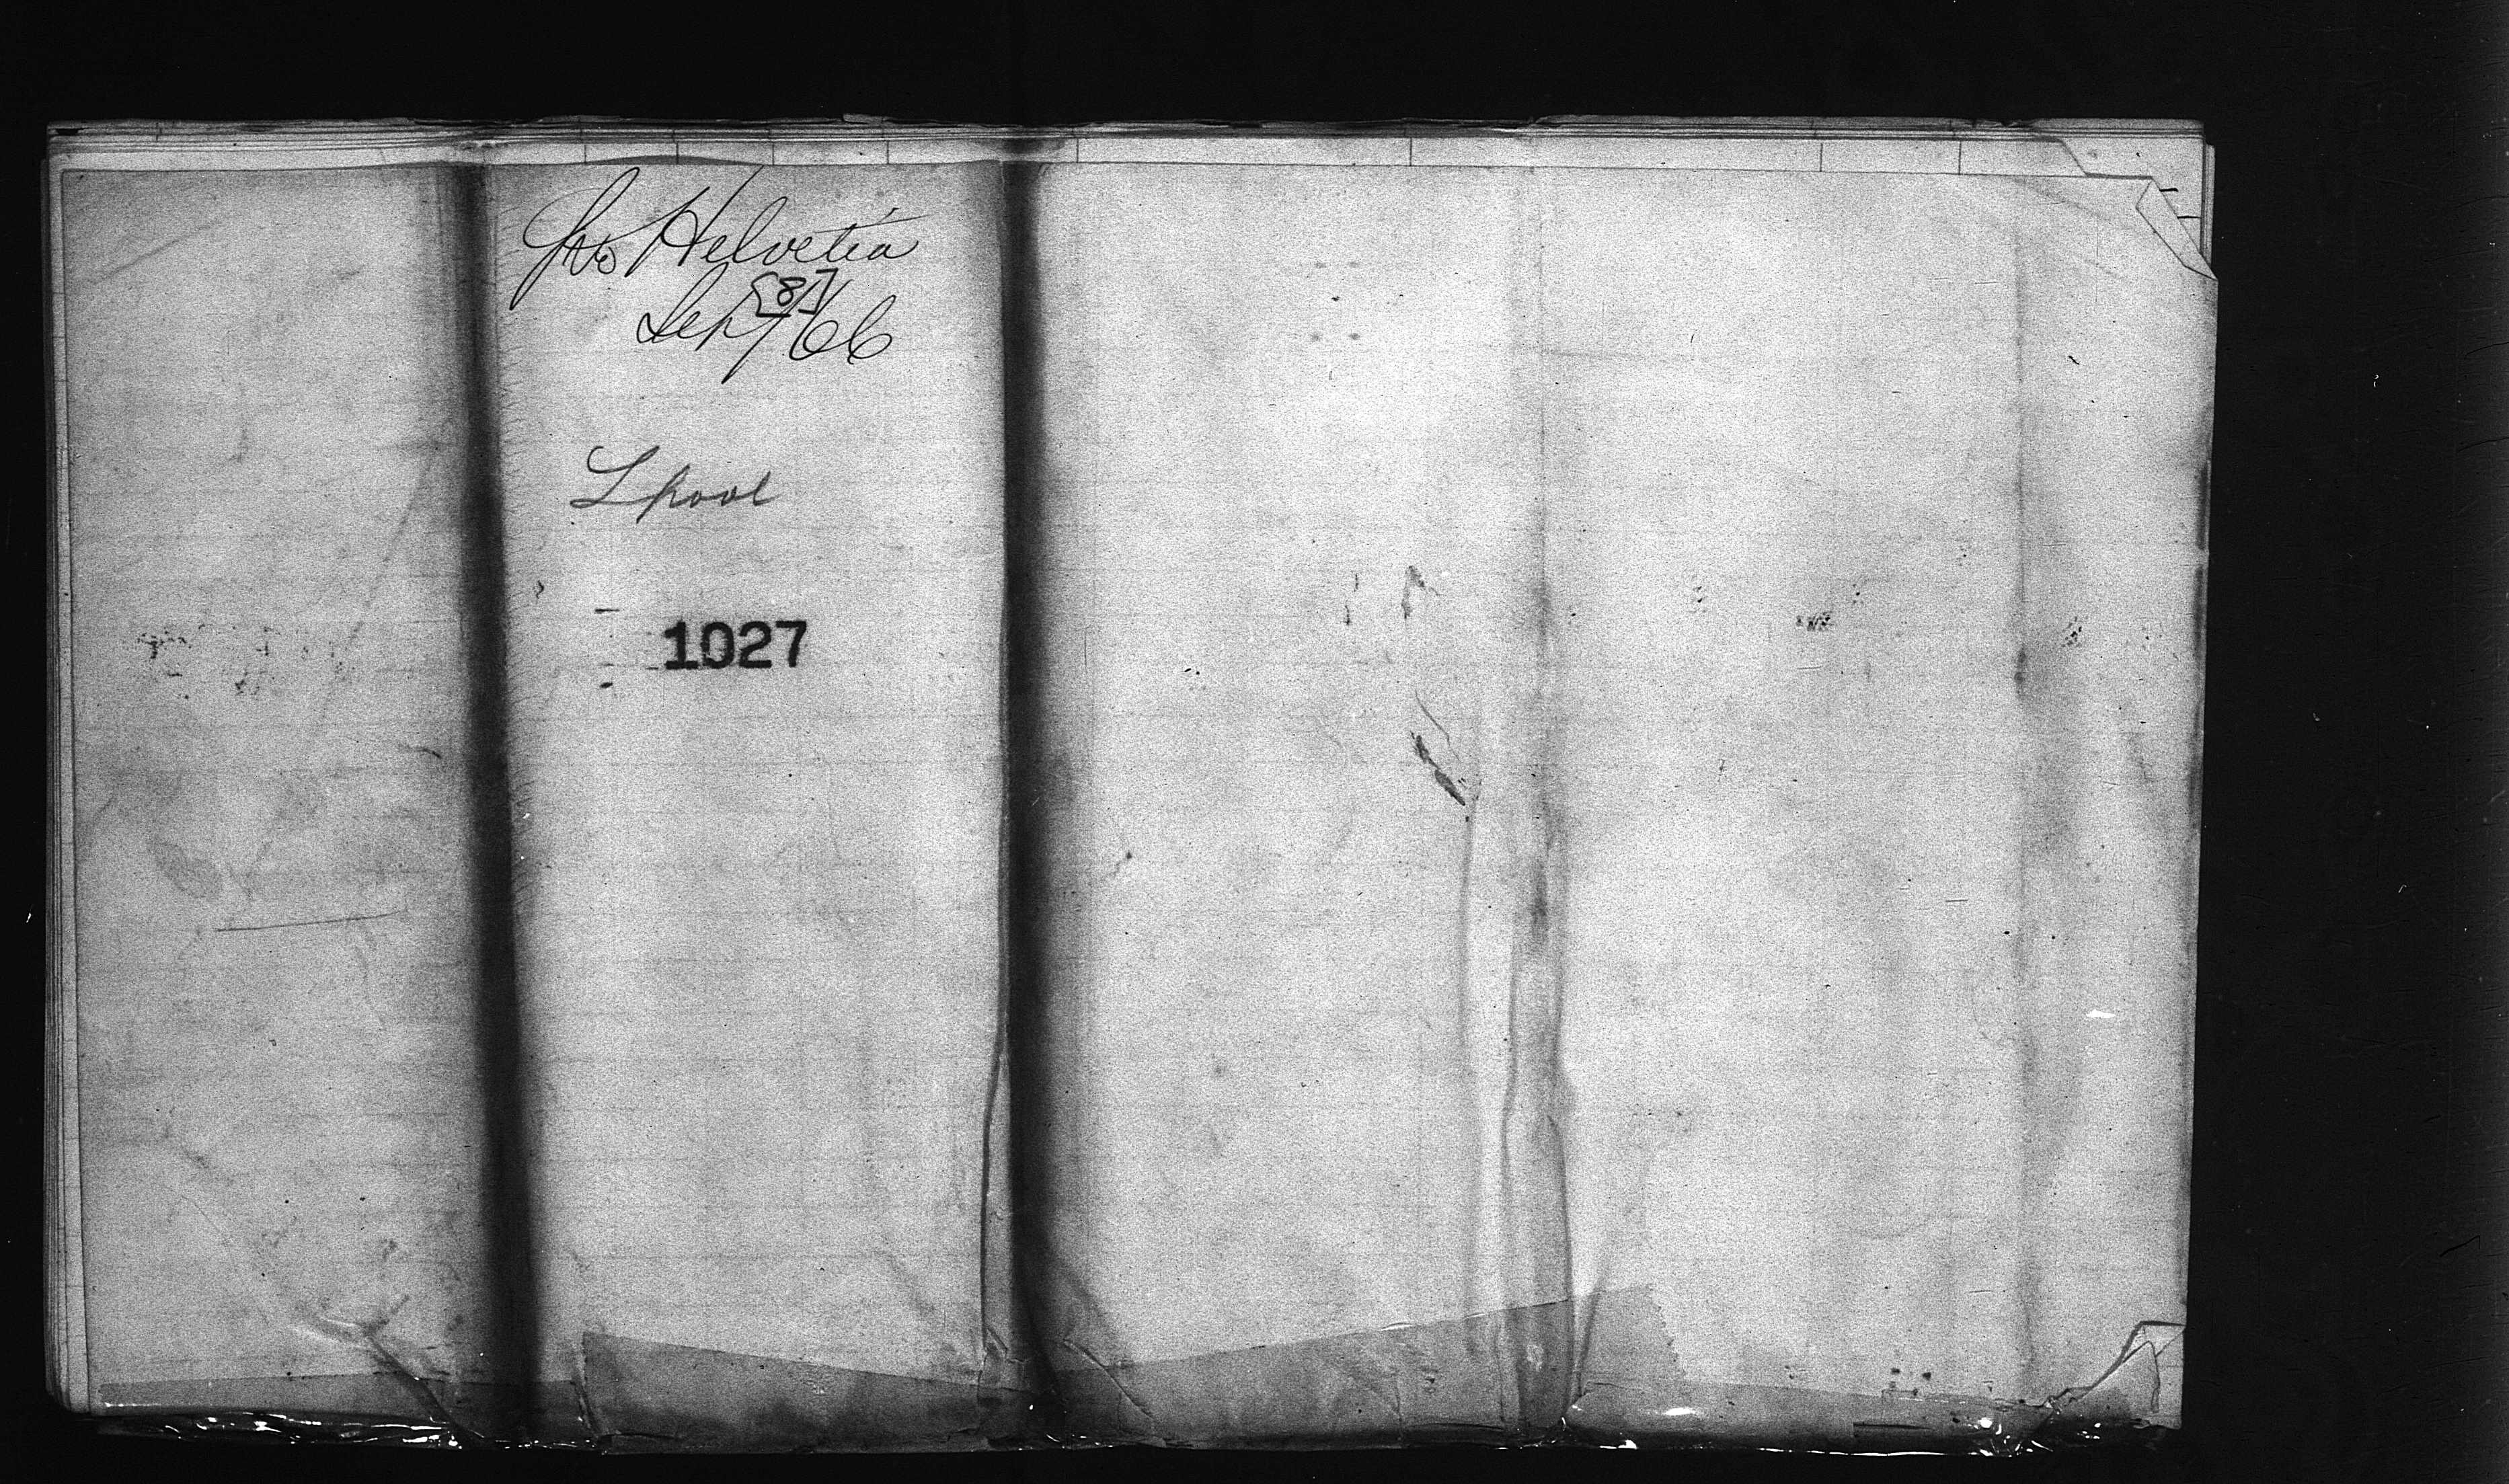 Helvetia
[8]
Sep/66
Lpool
1027